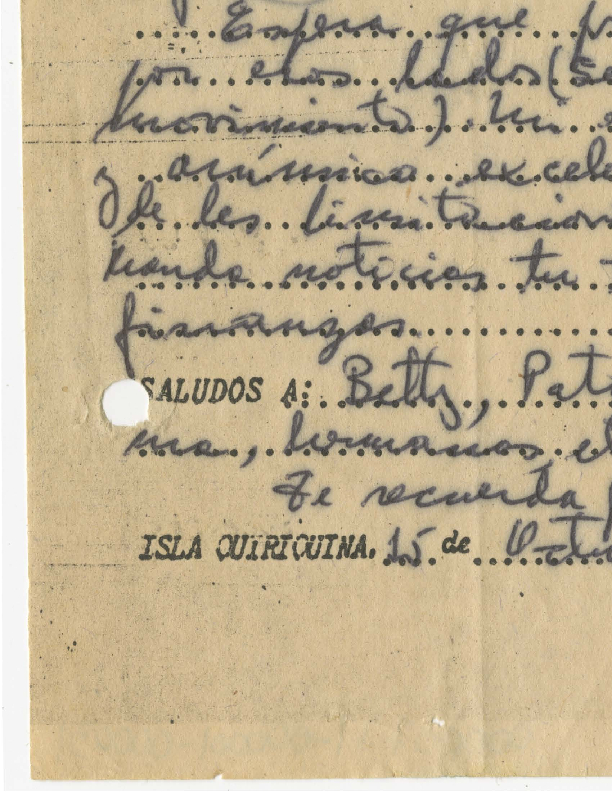 Espera que p
por esos lados (Se
movimiento). Mi e
y anímica excele
de las limitacion
Manda noticias tu
finanzas
SALUDOS A: Betty, Pat
ma, hermanos, el
Te recuerda
ISLA QUIRIQUINA. 15 de Octu